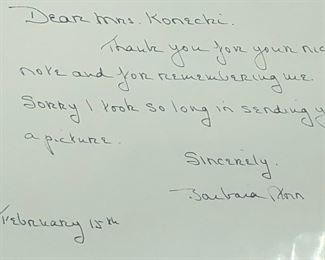 Dear Mrs. Konecki.
Thank you for your nic
note and for remembering me.
Sorry I took so long in sending y
a picture.
Sincerely.
Barbara Ann
February 15th